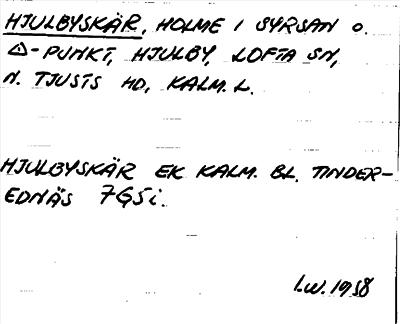 HJULBYSKÄR, HOLME I SYRSAN O.
△-PUNKT, HJULBY, LOFTA SN,
N. TJUSTS HD, KALM. L.
HJULBYSKÄR EK KALM. BL. TINDER-
EDNÄS 7G5i.
I.W. 1958